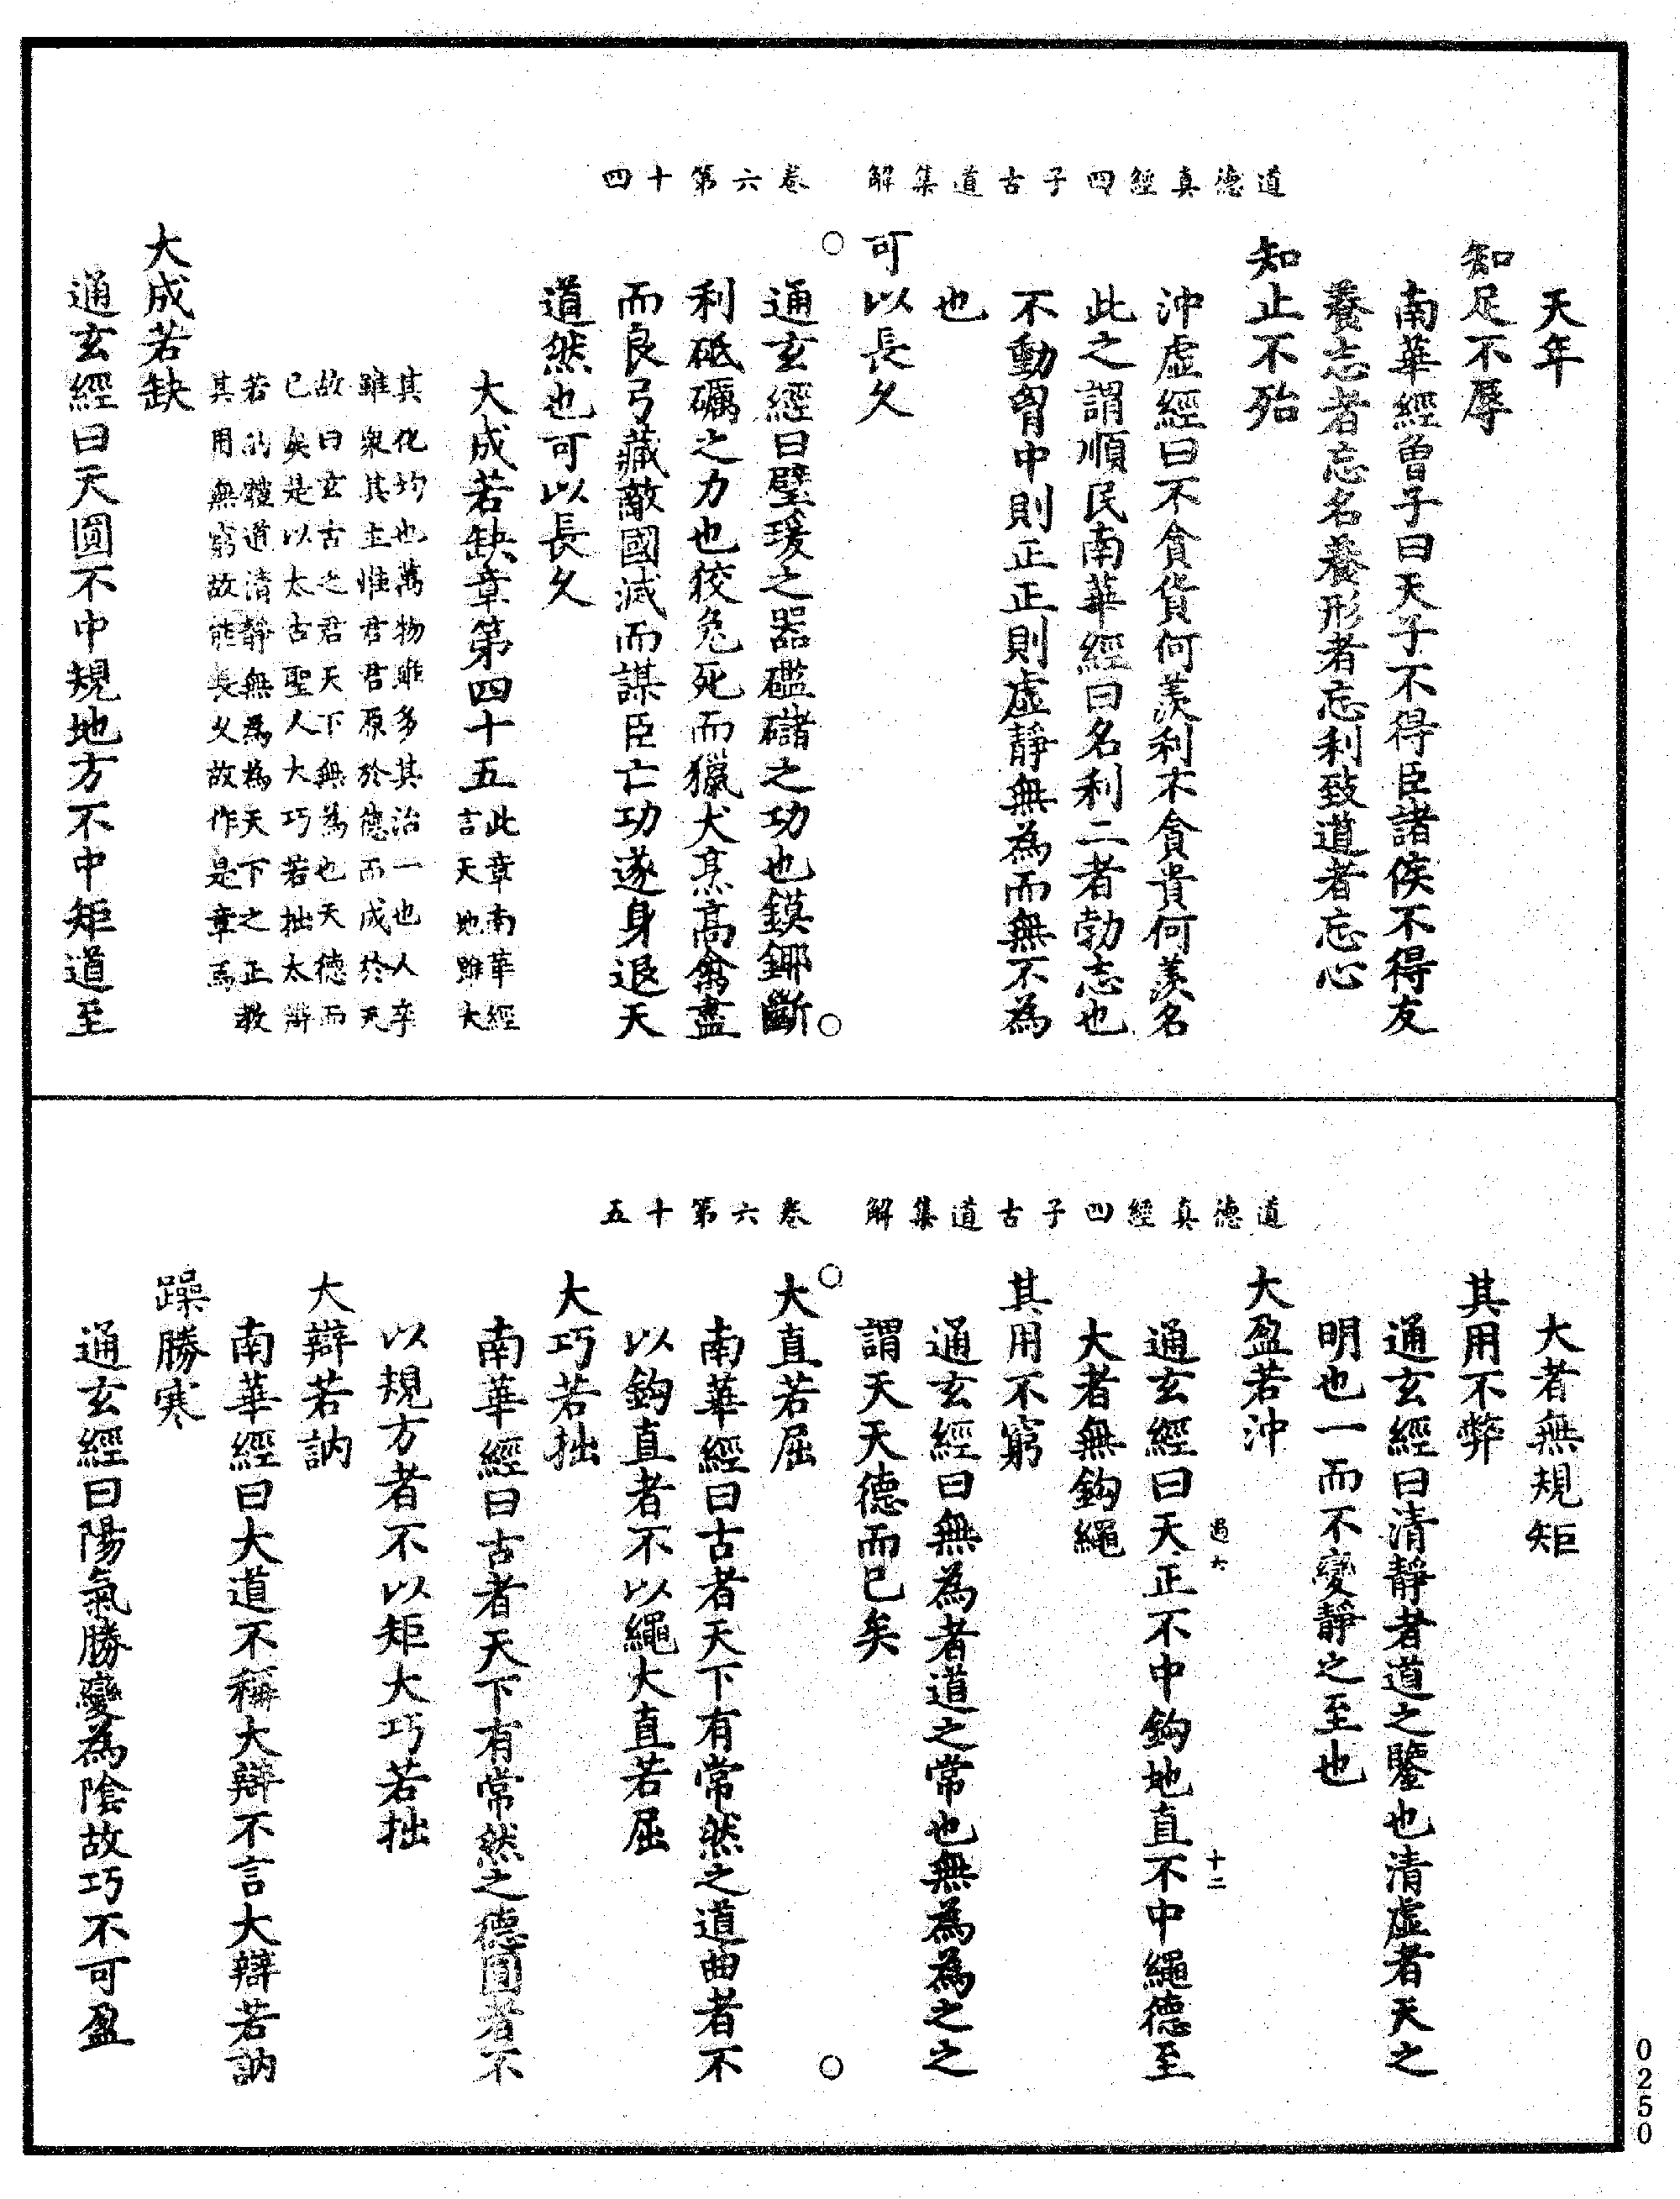 道德真經四子古道集解　卷六第十四
天年
知足不辱
南華經曾子曰天子不得臣諸侯不得友
養志者忘名養形者忘利致道者忘心
知止不殆
沖虛經曰不貪貨何羨利不貪貴何羨名
此之謂順民南華經曰名利二者勃志也
不動胷中則正正則虛靜無為而無不為
也
可以長久
通玄經曰璧瑗之器礛䃴之功也鏌鋣斷
利砥礪之力也狡兔死而獵犬烹高禽盡
而良弓藏敵國滅而謀臣亡功遂身退天
道然也可以長久
大成若缺章第四十五此章南華經
言天地雖大
其化均也萬物雖多其治一也人卒
雖衆其主惟君君原於德而成於天
故曰玄古之君天下無為也天德而
已矣是以太古聖人大巧若拙大辯
若訥體道清靜無為為天下之正教
其用無窮故能長久故作是章焉
大成若缺
通玄經曰天圓不中規地方不中矩道至
道德真經四子古道集解　卷六第十五
大者無規矩
其用不弊
通玄經曰清靜者道之鑒也清虛者天之
明也一而不變靜之至也
大盈若沖
過六　十二
通玄經曰天正不中鈎地直不中繩德至
大者無鈎繩
其用不窮
通玄經曰無為者道之常也無為為之之
謂天天德而已矣
大直若屈
南華經曰古者天下有常然之道曲者不
以鈎直者不以繩大直若屈
大巧若拙
南華經曰古者天下有常然之德圓者不
以規方者不以矩大巧若拙
大辯若訥
南華經曰大道不稱大辯不言大辯若訥
躁勝寒
通玄經曰陽氣勝變為陰故巧不可盈
0250